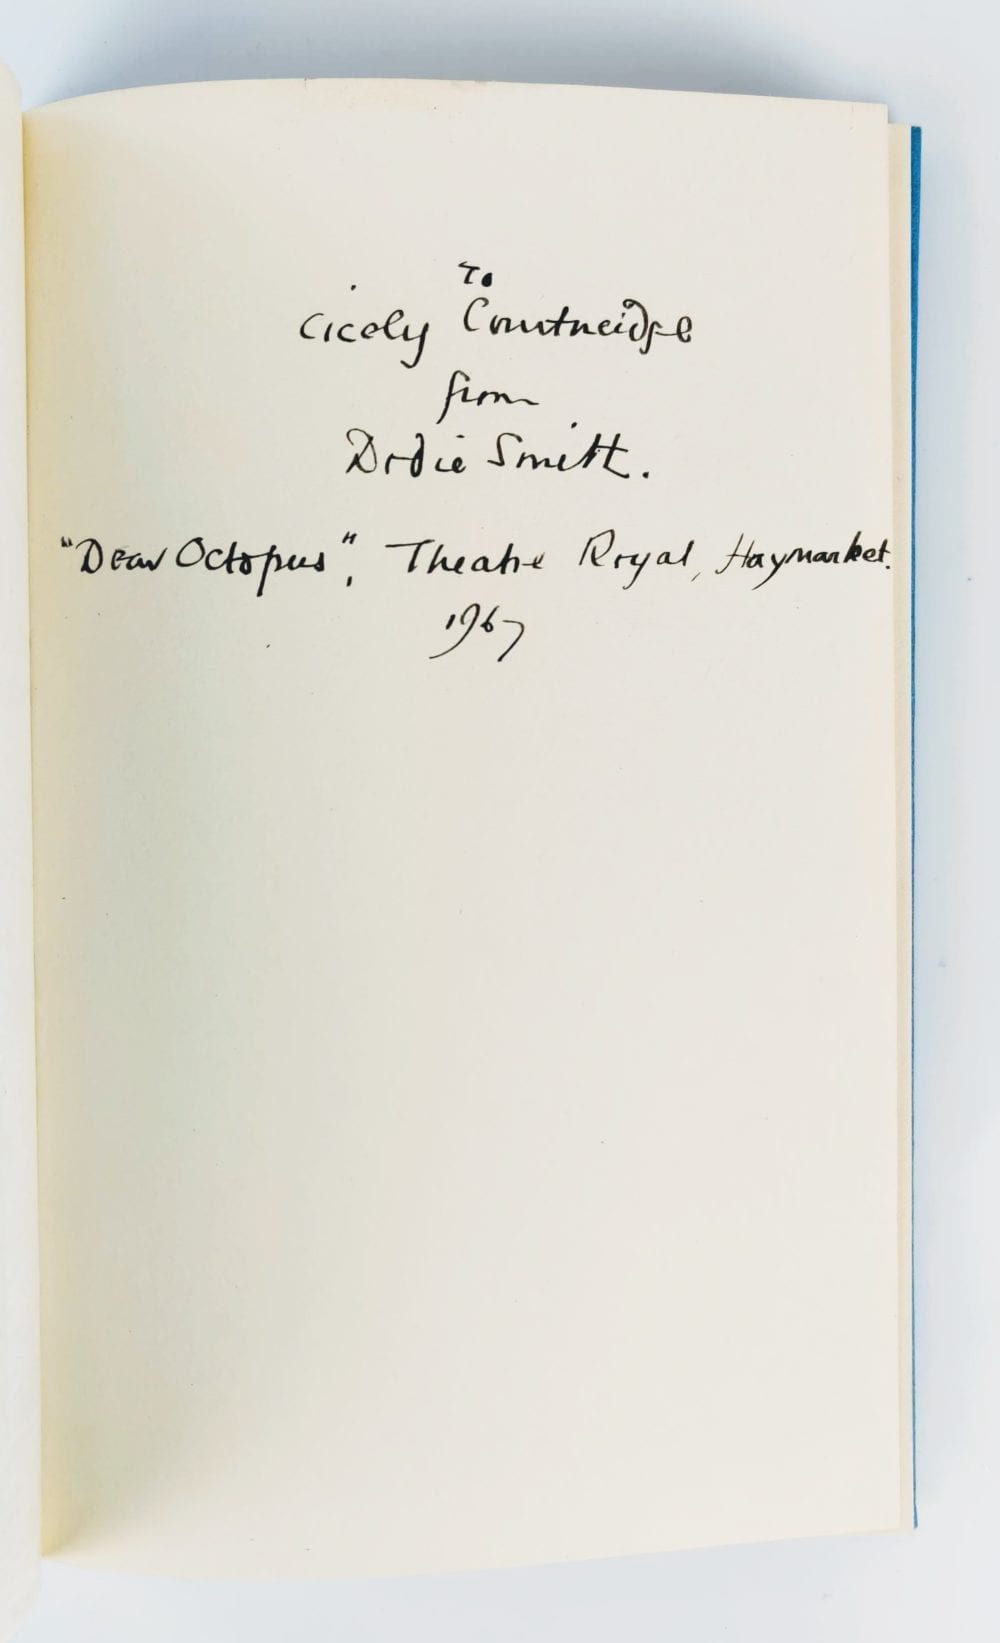 To
Cicely Courtneidge
from
Dodie Smith.
"Dear Octopus", Theatre Royal, Haymarket.
1967